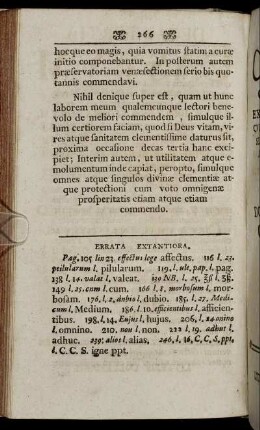 266
hocque eo magis, quia vomitus statim a curæ
initio componebantur. In posterum autem
præservatoriam venæsectionem serio bis quo-
tannis commendavi.
Nihil denique super est, quam ut hunc
laborem meum qualemcunque lectori bene-
volo de meliori commendem, simulque il-
lum certiorem faciam, quod si Deus vitam, vi-
res atque sanitatem clementissime daturus sit,
proxima occasione decas tertia hanc exci-
piet; Interim autem, ut utilitatem atque e-
molumentum inde capiat, peropto, simulque
omnes atque singulos divinæ clementiæ at-
que protectioni cum voto omnigenæ
prosperitatis etiam atque etiam
commendo.
ERRATA EXTANTIORA.
Pag. 105 lin 23. effectus lege affectus. 116 l. 23.
ptilularum l. pilularum. 119. l. ult. pap. l. pag.
138 l. 14. valat l. valeat. 139 NB. l. 25. ʒß l. ℥ß.
149 l. 25. eum l. cum. 166 l. 8. morbosum l. mor-
bosam. 176. l. 2. dubio l. dubio. 185. l. 27. Medi-
cum l. Medium. 186. l. 10. efficientibus l. afficien-
tibus. 198. l. 14. Eujus l. hujus. 206. l. 24. omino
l. omnino. 210. nou l. non. 222 l. 19. adhus l.
adhuc. 239. alios l. alias. 246. l. 16. C. C. S. ppt.
l. C. C. S. igne ppt.